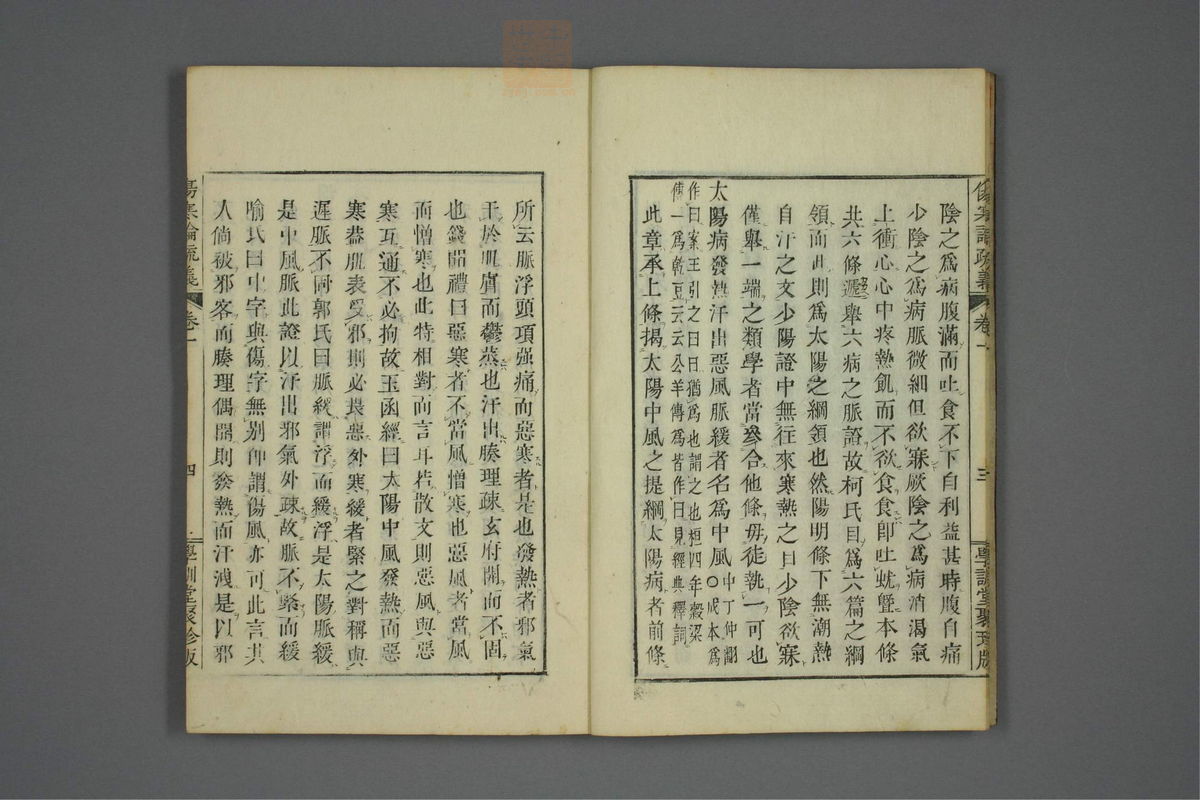 傷寒論疏義 卷一 三 學訓堂聚珍版
陰之爲病腹滿而吐食不下自利益甚時腹自痛
少陰之爲病脈微細但欲寐厥陰之爲病消渴氣
上衝心心中疼熱飢而不欲食食卽吐蚘曁本條
共六條遞舉六病之脈證故柯氏目爲六篇之綱
領而此則爲太陽之綱領也然陽明條下無潮熱
自汗之文少陽證中無往來寒熱之目少陰欲寐
僅舉一端之類學者當參合他條毋徒執一可也
太陽病發熱汗出惡風脈緩者名爲中風〇中丁仲翻成本爲
作曰案王引之曰曰猶爲也謂之也桓四年穀梁
傳一爲乾豆云云公羊傳爲皆作曰見經典釋詞
此章承上條揭太陽中風之提綱太陽病者前條
所云脈浮頭項强痛而惡寒者是也發熱者邪氣
于於肌膚而鬱蒸也汗出腠理疎玄府開而不固
也錢聞禮曰惡寒者不當風憎寒也惡風者當風
而憎寒也此特相對而言耳若散文則惡風與惡
寒互通不必拘故玉函經曰太陽中風發熱而惡
寒葢肌表受邪則必畏惡外寒緩者緊之對稱與
遲脈不同郭氏曰脈緩謂浮而緩浮是太陽脈緩
是中風脈此證以汗出邪氣外疎故脈不緊而緩
喻氏曰中字與傷字無別卽謂傷風亦可此言其
人倘被邪客而腠理偶開則發熱而汗淺是以邪
傷寒論疏義 卷一 四 學訓堂聚珍版